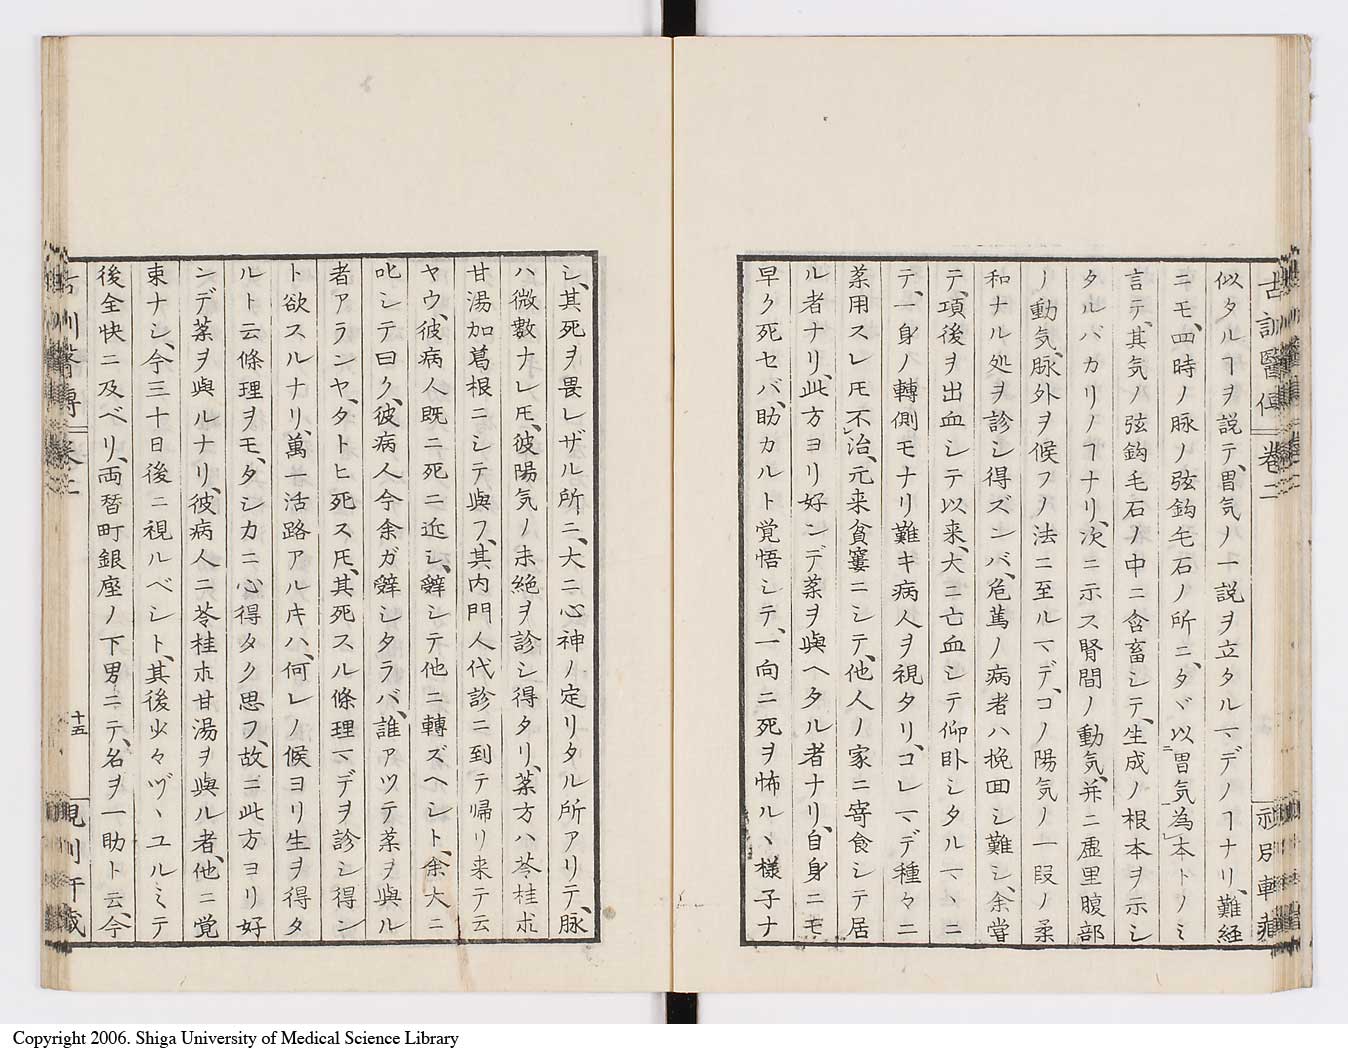 古訓醫傳 卷二
似タルヿヲ説テ、胃気ノ一説ヲ立タルマデノヿナリ、難経
ニモ、四時ノ脉ノ弦鈎毛石ノ所ニ、タヾ以胃気為本トノミ
言テ、其気ノ弦鈎毛石ノ中ニ含畜シテ、生成ノ根本ヲ示シ
タルバカリノヿナリ、次ニ示ス腎間ノ動気、并ニ虚里腹部
ノ動気、脉外ヲ候フノ法ニ至ルマデ、コノ陽気ノ一段ノ柔
和ナル処ヲ診シ得ズンバ、危篤ノ病者ハ挽回シ難シ、余甞
テ、項後ヲ出血シテ以来、大ニ亡血シテ仰卧シタルマヽニ
テ、一身ノ轉側モナリ難キ病人ヲ視タリ、コレマデ種々ニ
薬用スレ𪜈不治、元来貧窶ニシテ、他人ノ家ニ寄食シテ居
ル者ナリ、此方ヨリ好ンデ薬ヲ與ヘタル者ナリ、自身ニモ
早ク死セバ、助カルト覚悟シテ、一向ニ死ヲ怖ルヽ様子ナ
シ、其死ヲ畏レザル所ニ、大ニ心神ノ定リタル所アリテ、脉
ハ微數ナレ𪜈、彼陽気ノ未絶ヲ診シ得タリ、薬方ハ苓桂朮
甘湯加葛根ニシテ與フ、其内門人代診ニ到テ帰リ来テ云
ヤウ、彼病人既ニ死ニ近シ、辭シテ他ニ轉ズヘシト、余大ニ
叱シテ曰ク、彼病人今余ガ辭シタラバ、誰アツテ薬ヲ與ル
者アランヤ、タトヒ死ス𪜈、其死スル條理マデヲ診シ得ン
ト欲スルナリ、萬一活路アルキハ、何レノ候ヨリ生ヲ得タ
ルト云條理ヲモ、タシカニ心得タク思フ、故ニ此方ヨリ好
ンデ薬ヲ與ルナリ、彼病人ニ苓桂朮甘湯ヲ與ル者、他ニ覚
束ナシ、今三十日後ニ視ルベシト、其後少々ヅヽユルミテ
後全快ニ及ベリ、両替町銀座ノ下男ニテ、名ヲ一助ト云、今
十五
Copyright 2006. Shiga University of Medical Science Library